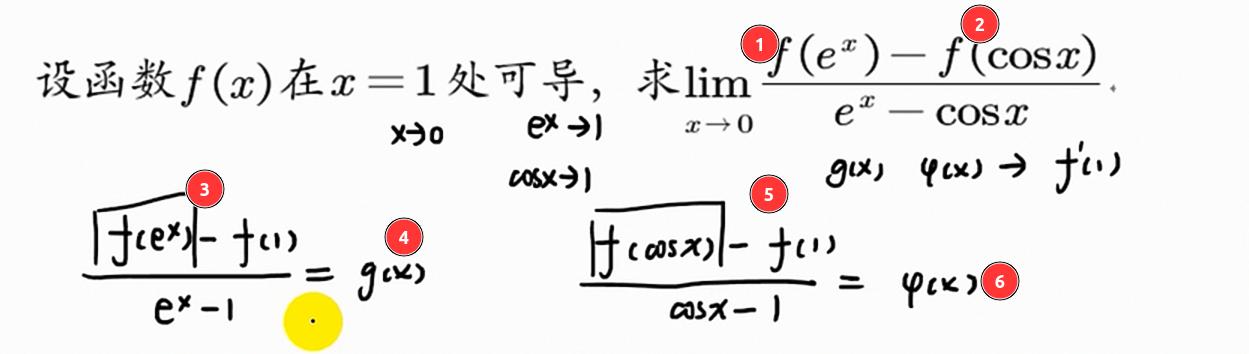 设函数 f(x) 在 x = 1 处可导，求 lim_{x→0} (f(e^x) − f(cos x)) / (e^x − cos x).
1
2
x→0 e^x→1
cosx→1 g(x), φ(x) → f'(1)
3
4
5
6
(f(e^x) − f(1)) / (e^x − 1) = g(x)
(f(cosx) − f(1)) / (cosx − 1) = φ(x)